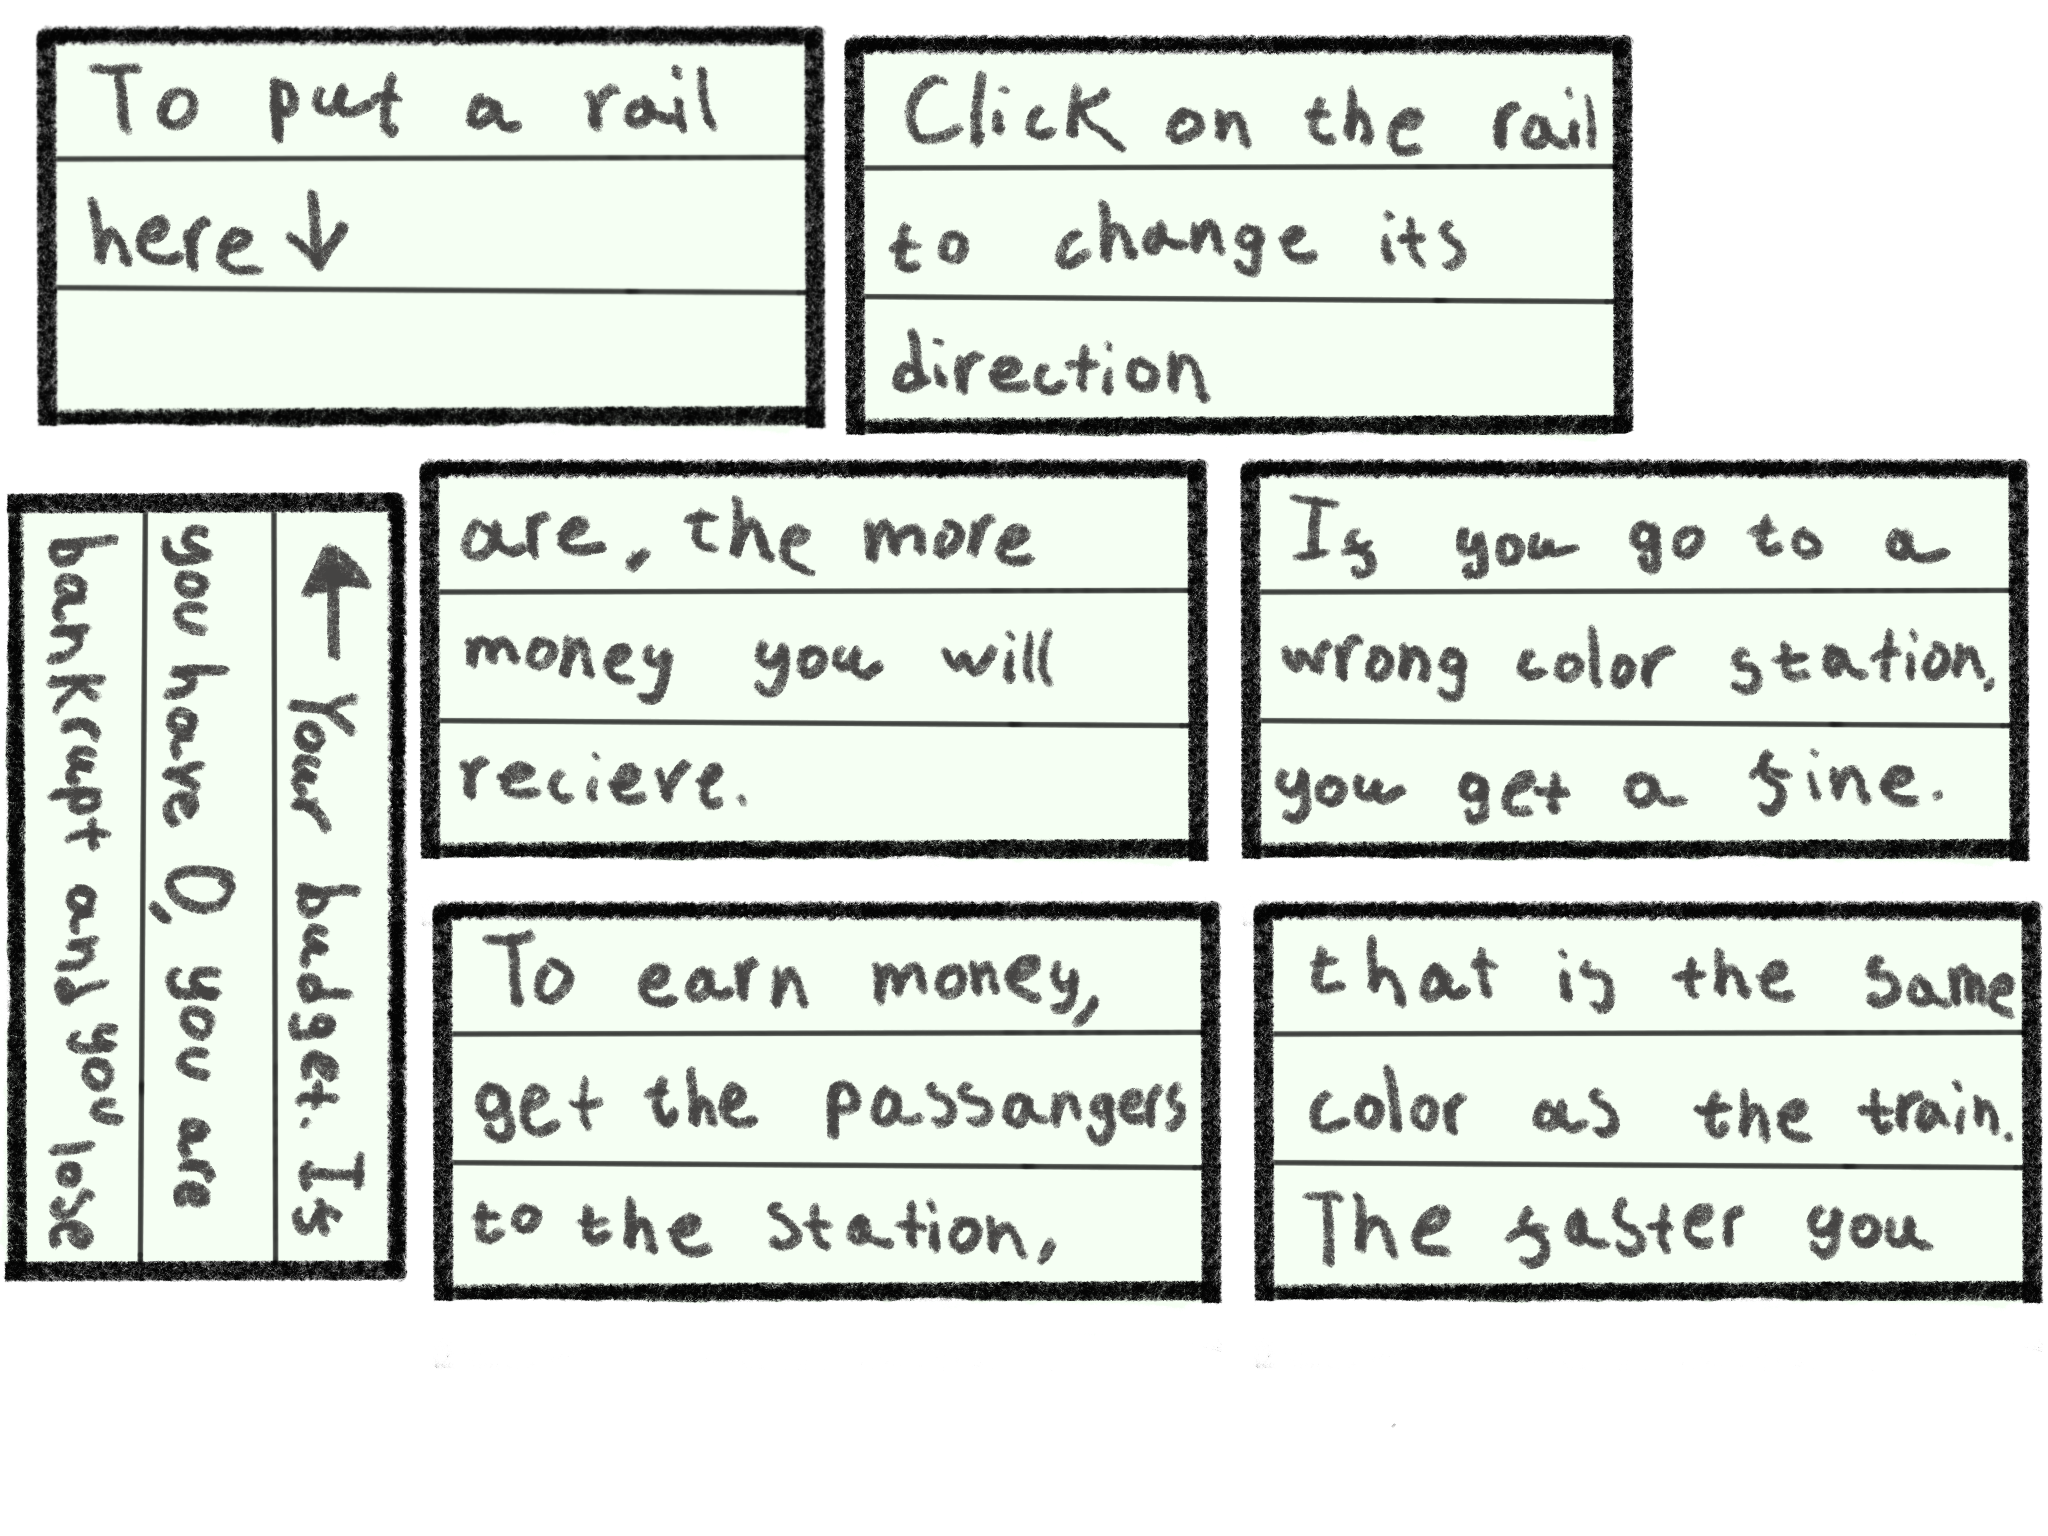 To put a rail
here ↓
Click on the rail
to change its
direction
← Your budget. If
you have 0, you are
bankrupt and you lose
are, the more
money you will
recieve.
If you go to a
wrong color station,
you get a fine.
To earn money,
get the passangers
to the station,
that is the same
color as the train.
The faster you